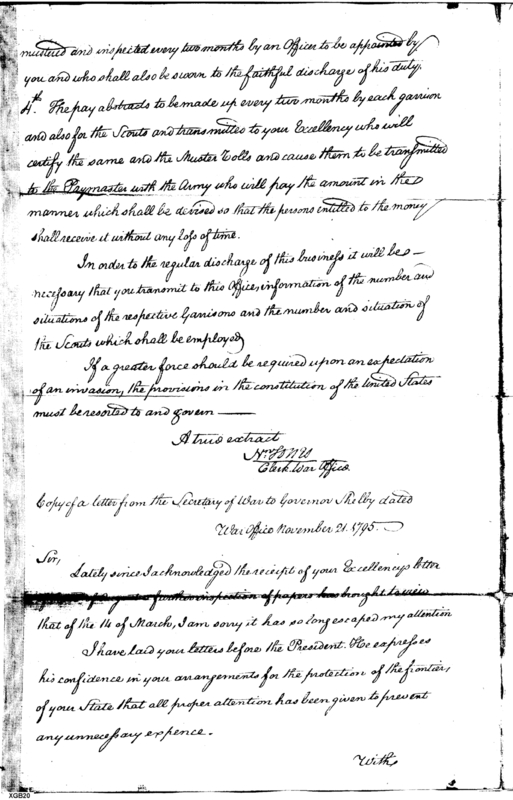 mustered and inspected every two months by an Officer to be appointed by
you and who shall also be sworn to the faithful discharge of his duty.
4th. The pay abstracts to be made up every two months by each garrison
and also for the Scouts and transmitted to your Excellency who will
certify the same and the Muster Rolls and cause them to be transmitted
to the Paymaster with the Army who will pay the amount in the
manner which shall be devised so that the persons intitled to the money
shall receive it without any loss of time.
In order to the regular discharge of this business it will be
necessary that you transmit to this Office, information of the number and
situations of the respective Garrisons and the number and situation of
the Scouts which shall be employed
If a greater force should be required upon an expectation
of an invasion, the provisions in the constitution of the United States
must be resorted to and govern —
A true extract
Clerk War Office
Copy of a letter from the Secretary of War to Governor Shelby dated
War Office November 21. 1795.
Sir,
Lately since I acknowledged the receipt of your Excellencys letter
a further inspection of papers has brought to view
that of the 14 of March, I am sorry it has so long escaped my attention
I have laid your letters before the President. He expresses
his confidence in your arrangements for the protection of the frontier,
of your State that all proper attention has been given to prevent
any unnecessary expence.
With
XGB20